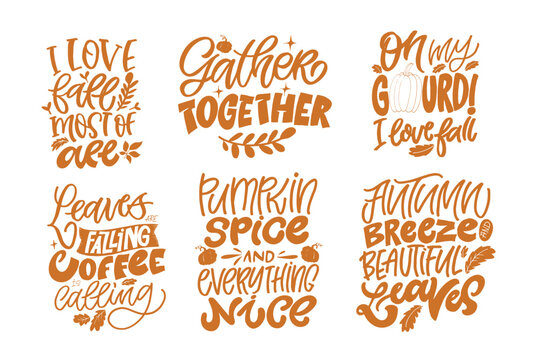 I LOVE
fall
MOST OF
aLL
Gather
TOGETHER
Oh my
GOURD!
I love fall
Leaves ARE
FALLING
COFFEE
IS
calling
PUMPKIN
SPICE
AND
EVERYTHING
NICE
AUTUMN
BREEZE AND
BEAUTIFUL
Leaves